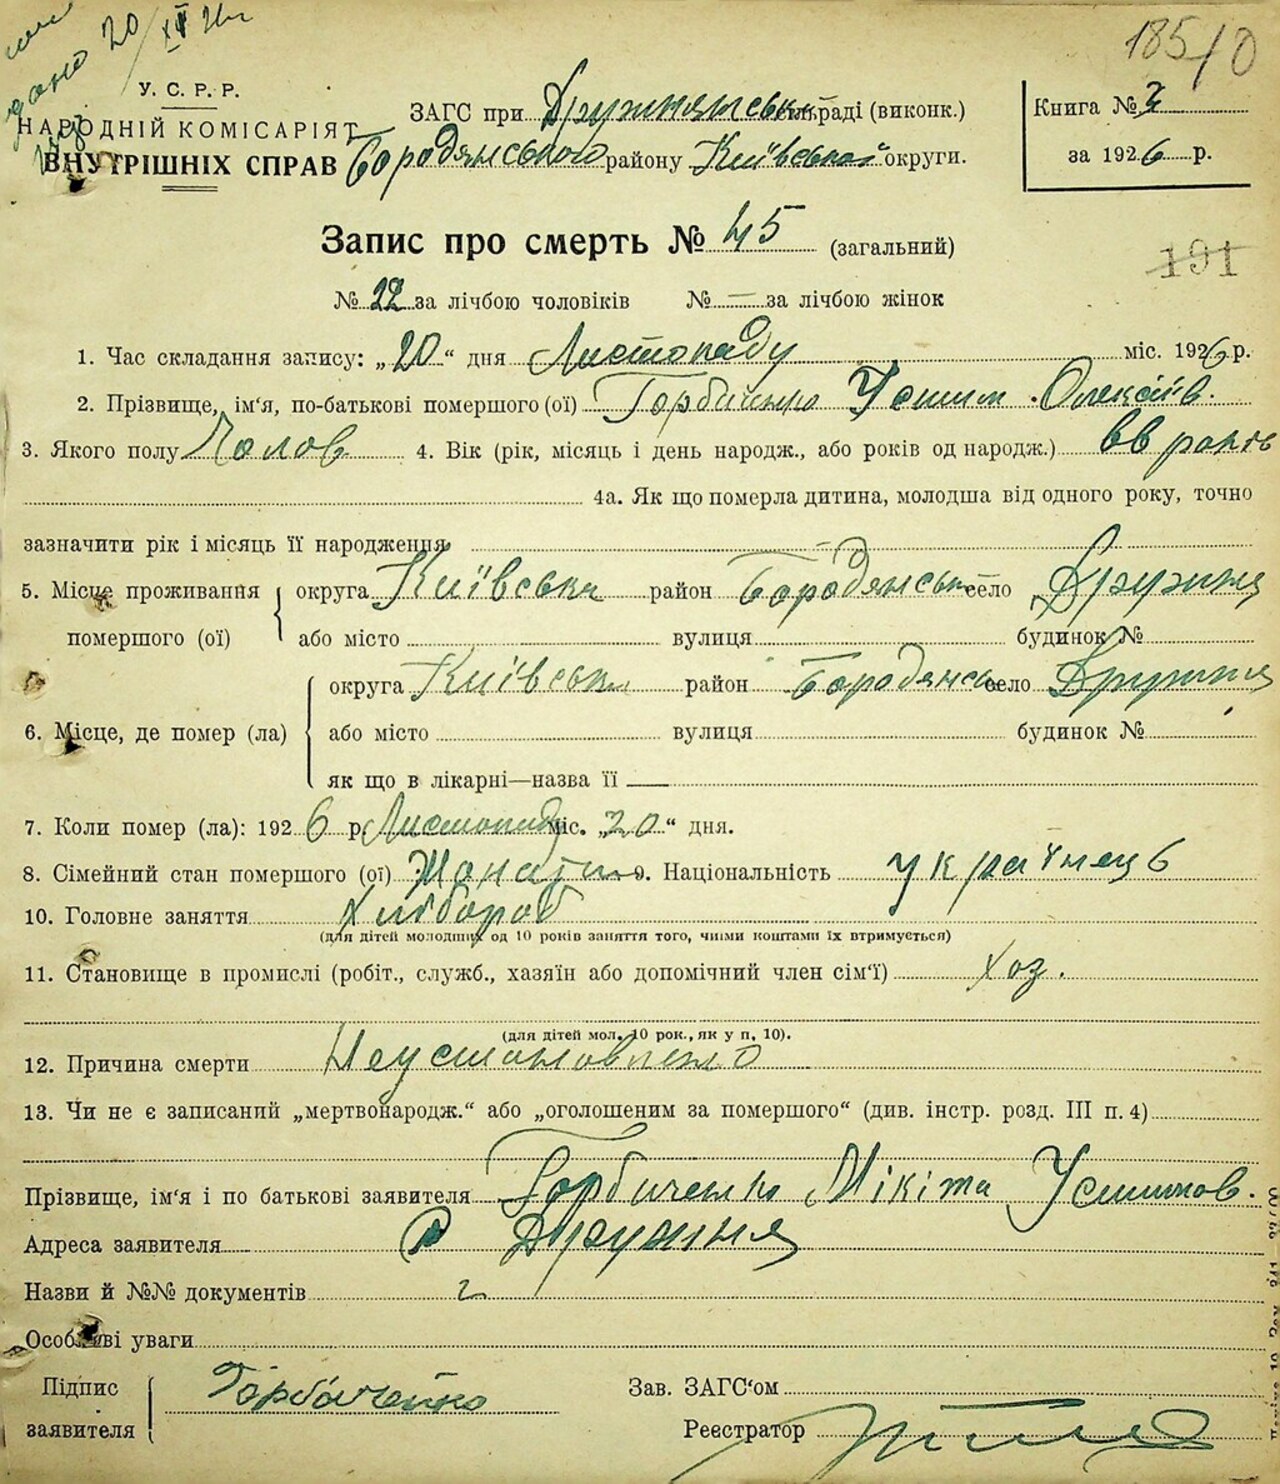 дано 20/XII 26 г
185/0
У. С. Р. Р.
НАРОДНІЙ КОМІСАРІЯТ
ВНУТРІШНІХ СПРАВ
ЗАГС при Дружнянськ сільраді (виконк.)
Бородянського району Київської округи.
Книга № 2
за 1926 р.
Запис про смерть № 45 (загальний)
191
№ 22 за лічбою чоловіків № — за лічбою жінок
1. Час складання запису: „20“ дня Листопаду міс. 1926 р.
2. Прізвище, ім'я, по-батькові помершого (ої) Горбиченко Устим Олексіїв.
3. Якого полу Чолов 4. Вік (рік, місяць і день народж., або років од народж.) 66 років
4а. Як що померла дитина, молодша від одного року, точно
зазначити рік і місяць її народження
5. Місце проживання помершого (ої) округа Київська район Бородянськ село Дружня
або місто вулиця будинок №
6. Місце, де помер (ла) округа Київськ район Бородянськ село Дружня
або місто вулиця будинок №
як що в лікарні—назва її
7. Коли помер (ла): 1926 р. Листопаду міс. „20“ дня.
8. Сімейний стан помершого (ої) Жонатий 9. Національність Українець
10. Головне заняття Хлібороб
(для дітей молодших од 10 років заняття того, чиїми коштами їх втримується)
11. Становище в промислі (робіт., служб., хазяїн або допомічний член сім'ї) Хоз.
(для дітей мол. 10 рок., як у п. 10).
12. Причина смерти Неустановлено
13. Чи не є записаний „мертвонародж.“ або „оголошеним за помершого“ (див. інстр. розд. III п. 4)
Прізвище, ім'я і по батькові заявителя Горбиченко Мікіта Устимов.
Адреса заявителя с Дружня
Назви й №№ документів
Особливі уваги
Підпис заявителя Горбиченко
Зав. ЗАГС'ом
Реєстратор